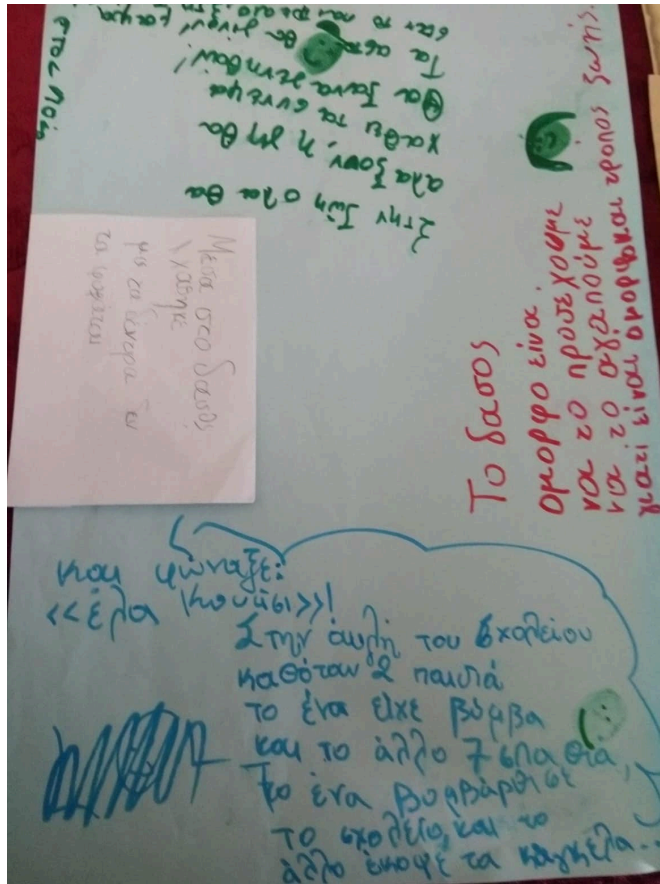 Στην ζωή ολα θα
αλαξουν, η γη θα
χαθει τα συνεμα
Θα ξανα γεννηθουν!
Τα θα γινουν
Μεσα στο δασος
χαθηκε
με τα δεντρα
Το δασος
ομορφο είναι.
να το προσεχουμε
να το αγαπούμε
γιατι είναι τροπος ζωής.
και φώναξε:
<<έλα
Στην άυλη του σχολείου
καθόταν 2 παιδιά
το ένα είχε βόμβα
και το άλλο 7 σπαθιά,
το ένα βομβάρθισε
το σχολείο, και το
άλλο έκοψε τα καγκελα..